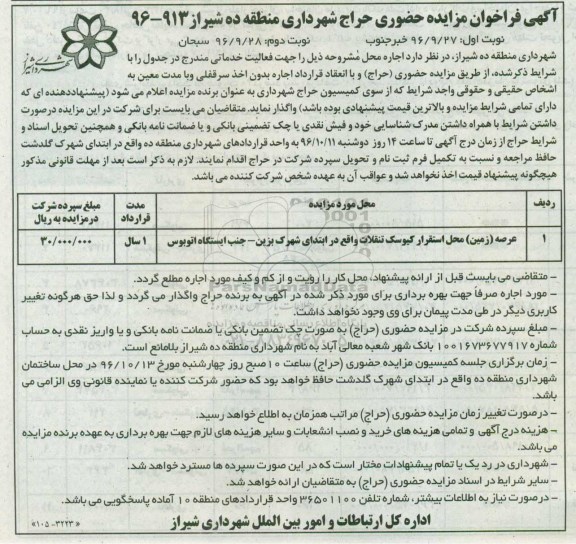 آگهی فراخوان مزایده حضوری حراج شهرداری منطقه ده شیراز ۹۱۳-۹۶
نوبت اول: ۹۶/۹/۲۷ خبرجنوب نوبت دوم: ۹۶/۹/۲۸ سبحان
شهرداری منطقه ده شیراز، در نظر دارد اجاره محل مشروحه ذیل را جهت فعالیت خدماتی مندرج در جدول را با
شرایط ذکرشده، از طریق مزایده حضوری (حراج) و با انعقاد قرارداد اجاره بدون اخذ سرقفلی وبا مدت معین به
اشخاص حقیقی و حقوقی واجد شرایط که از سوی کمیسیون حراج شهرداری به عنوان برنده مزایده اعلام می شود (پیشنهاددهنده ای که
دارای تمامی شرایط مزایده و بالاترین قیمت پیشنهادی بوده باشد) واگذار نماید. متقاضیان می بایست برای شرکت در این مزایده درصورت
داشتن شرایط با همراه داشتن مدرک شناسایی خود و فیش نقدی یا چک تضمینی بانکی و یا ضمانت نامه بانکی و همچنین تحویل اسناد و
شرایط حراج از زمان درج آگهی تا ساعت ۱۴ روز دوشنبه ۹۶/۱۰/۱۱ به واحد قراردادهای شهرداری منطقه ده واقع در ابتدای شهرک گلدشت
حافظ مراجعه و نسبت به تکمیل فرم ثبت نام و تحویل سپرده شرکت در حراج اقدام نمایند. لازم به ذکر است بعد از مهلت قانونی مذکور
هیچگونه پیشنهاد قیمت اخذ نخواهد شد و عواقب آن به عهده شخص شرکت کننده می باشد.
ردیف محل مورد مزایده مدت قرارداد مبلغ سپرده شرکت درمزایده به ریال
۱ عرصه (زمین) محل استقرار کیوسک تنقلات واقع در ابتدای شهرک بزین – جنب ایستگاه اتوبوس ۱ سال ۳۰/۰۰۰/۰۰۰
– متقاضی می بایست قبل از ارائه پیشنهاد، محل کار را رویت و از کم و کیف مورد اجاره مطلع گردد.
– مورد اجاره صرفاً جهت بهره برداری برای مورد ذکر شده در آگهی به برنده حراج واگذار می گردد و لذا حق هرگونه تغییر
کاربری دیگر در طی مدت پیمان برای وی وجود نخواهد داشت.
– مبلغ سپرده شرکت در مزایده حضوری (حراج) به صورت چک تضمین بانکی یا ضمانت نامه بانکی و یا واریز نقدی به حساب
شماره ۱۰۰۱۶۷۳۶۷۷۹۱۷ بانک شهر شعبه معالی آباد به نام شهرداری منطقه ده شیراز بلامانع است.
– زمان برگزاری جلسه کمیسیون مزایده حضوری (حراج) ساعت ۱۰ صبح روز چهارشنبه مورخ ۹۶/۱۰/۱۳ در محل ساختمان
شهرداری منطقه ده واقع در ابتدای شهرک گلدشت حافظ خواهد بود که حضور شرکت کننده یا نماینده قانونی وی الزامی می
باشد.
– درصورت تغییر زمان مزایده حضوری (حراج) مراتب همزمان به اطلاع خواهد رسید.
– هزینه درج آگهی و تمامی هزینه های خرید و نصب انشعابات و سایر هزینه های لازم جهت بهره برداری به عهده برنده مزایده
می باشد.
– شهرداری در رد یک یا تمام پیشنهادات مختار است که در این صورت سپرده ها مسترد خواهد شد.
– سایر شرایط در اسناد مزایده حضوری (حراج) به متقاضیان ارائه خواهد شد.
– درصورت نیاز به اطلاعات بیشتر، شماره تلفن ۳۶۵۰۱۱۰۰ واحد قراردادهای منطقه ۱۰ آماده پاسخگویی می باشد.
اداره کل ارتباطات و امور بین الملل شهرداری شیراز
«۱۰۵-۳۲۲۳»